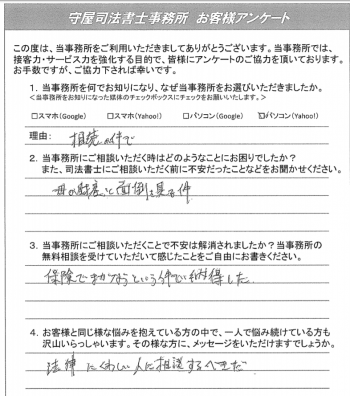 守屋司法書士事務所 お客様アンケート
この度は、当事務所をご利用いただきましてありがとうございます。当事務所では、
接客力・サービス力を強化する目的で、皆様にアンケートのご協力を頂いております。
お手数ですが、ご協力下されば幸いです。
1. 当事務所を何でお知りになり、なぜ当事務所をお選びいただきましたか。
<当事務所をお知りになった媒体のチェックボックスにチェックをお願いいたします。>
□スマホ(Google) □スマホ(Yahoo!) □パソコン(Google) ☑パソコン(Yahoo!)
理由: 相続の件で
2. 当事務所にご相談いただく時はどのようなことにお困りでしたか?
また、司法書士にご相談いただく前に不安だったことなどをお聞かせください。
母の財産と面倒を見る件
3. 当事務所にご相談いただくことで不安は解消されましたか?当事務所の
無料相談を受けていただいて感じたことをご自由にお書きください。
保険でまかなうという件で納得した
4. お客様と同じ様な悩みを抱えている方の中で、一人で悩み続けている方も
沢山いらっしゃいます。その様な方に、メッセージをいただけますでしょうか。
法律にくわしい人に相談するべきだ